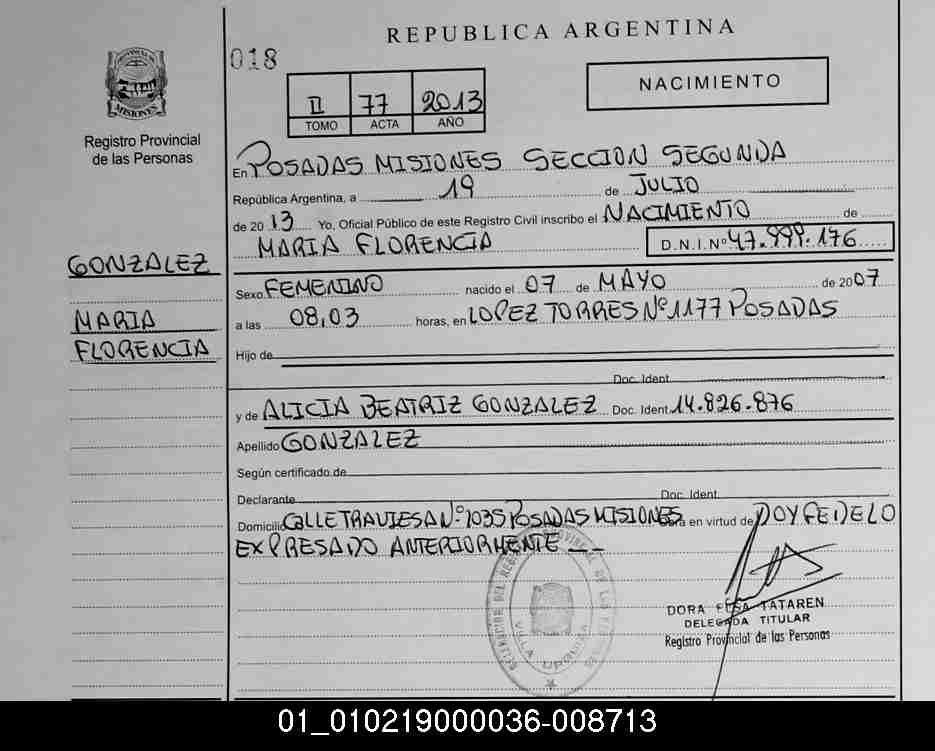 REPUBLICA ARGENTINA
018
PROVINCIA DE
MISIONES
Registro Provincial
de las Personas
II 77 2013
TOMO ACTA AÑO
NACIMIENTO
En POSADAS MISIONES SECCION SEGUNDA
República Argentina, a 19 de JULIO
de 2013 Yo, Oficial Público de este Registro Civil inscribo el NACIMIENTO de
MARIA FLORENCIA D.N.I.Nº 47.999.176
GONZALEZ
MARIA
FLORENCIA
Sexo FEMENINO nacido el 07 de MAYO de 2007
a las 08,03 horas, en LOPEZ TORRES Nº 1177 POSADAS
Hijo de
Doc. Ident.
y de ALICIA BEATRIZ GONZALEZ Doc. Ident. 14.826.876
Apellido GONZALEZ
Según certificado de
Declarante Doc. Ident.
Domicilio CALLE TRAVIESA Nº 1035 POSADAS MISIONES en virtud de DOY FE DE LO
EXPRESADO ANTERIORMENTE
VILLA URQUIZA
DORA TATAREN
DELEGADA TITULAR
Registro Provincial de las Personas
01_010219000036-008713